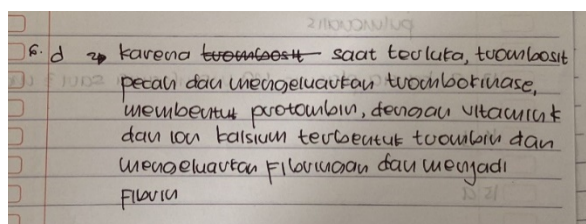 6. d → karena trombosit saat terluka, trombosit
pecah dan mengeluarkan tromborinase,
membentuk protombin, dengan vitamin k
dan ion kalsium terbentuk trombin dan
mengeluarkan Fibringan dan menjadi
Fibrin